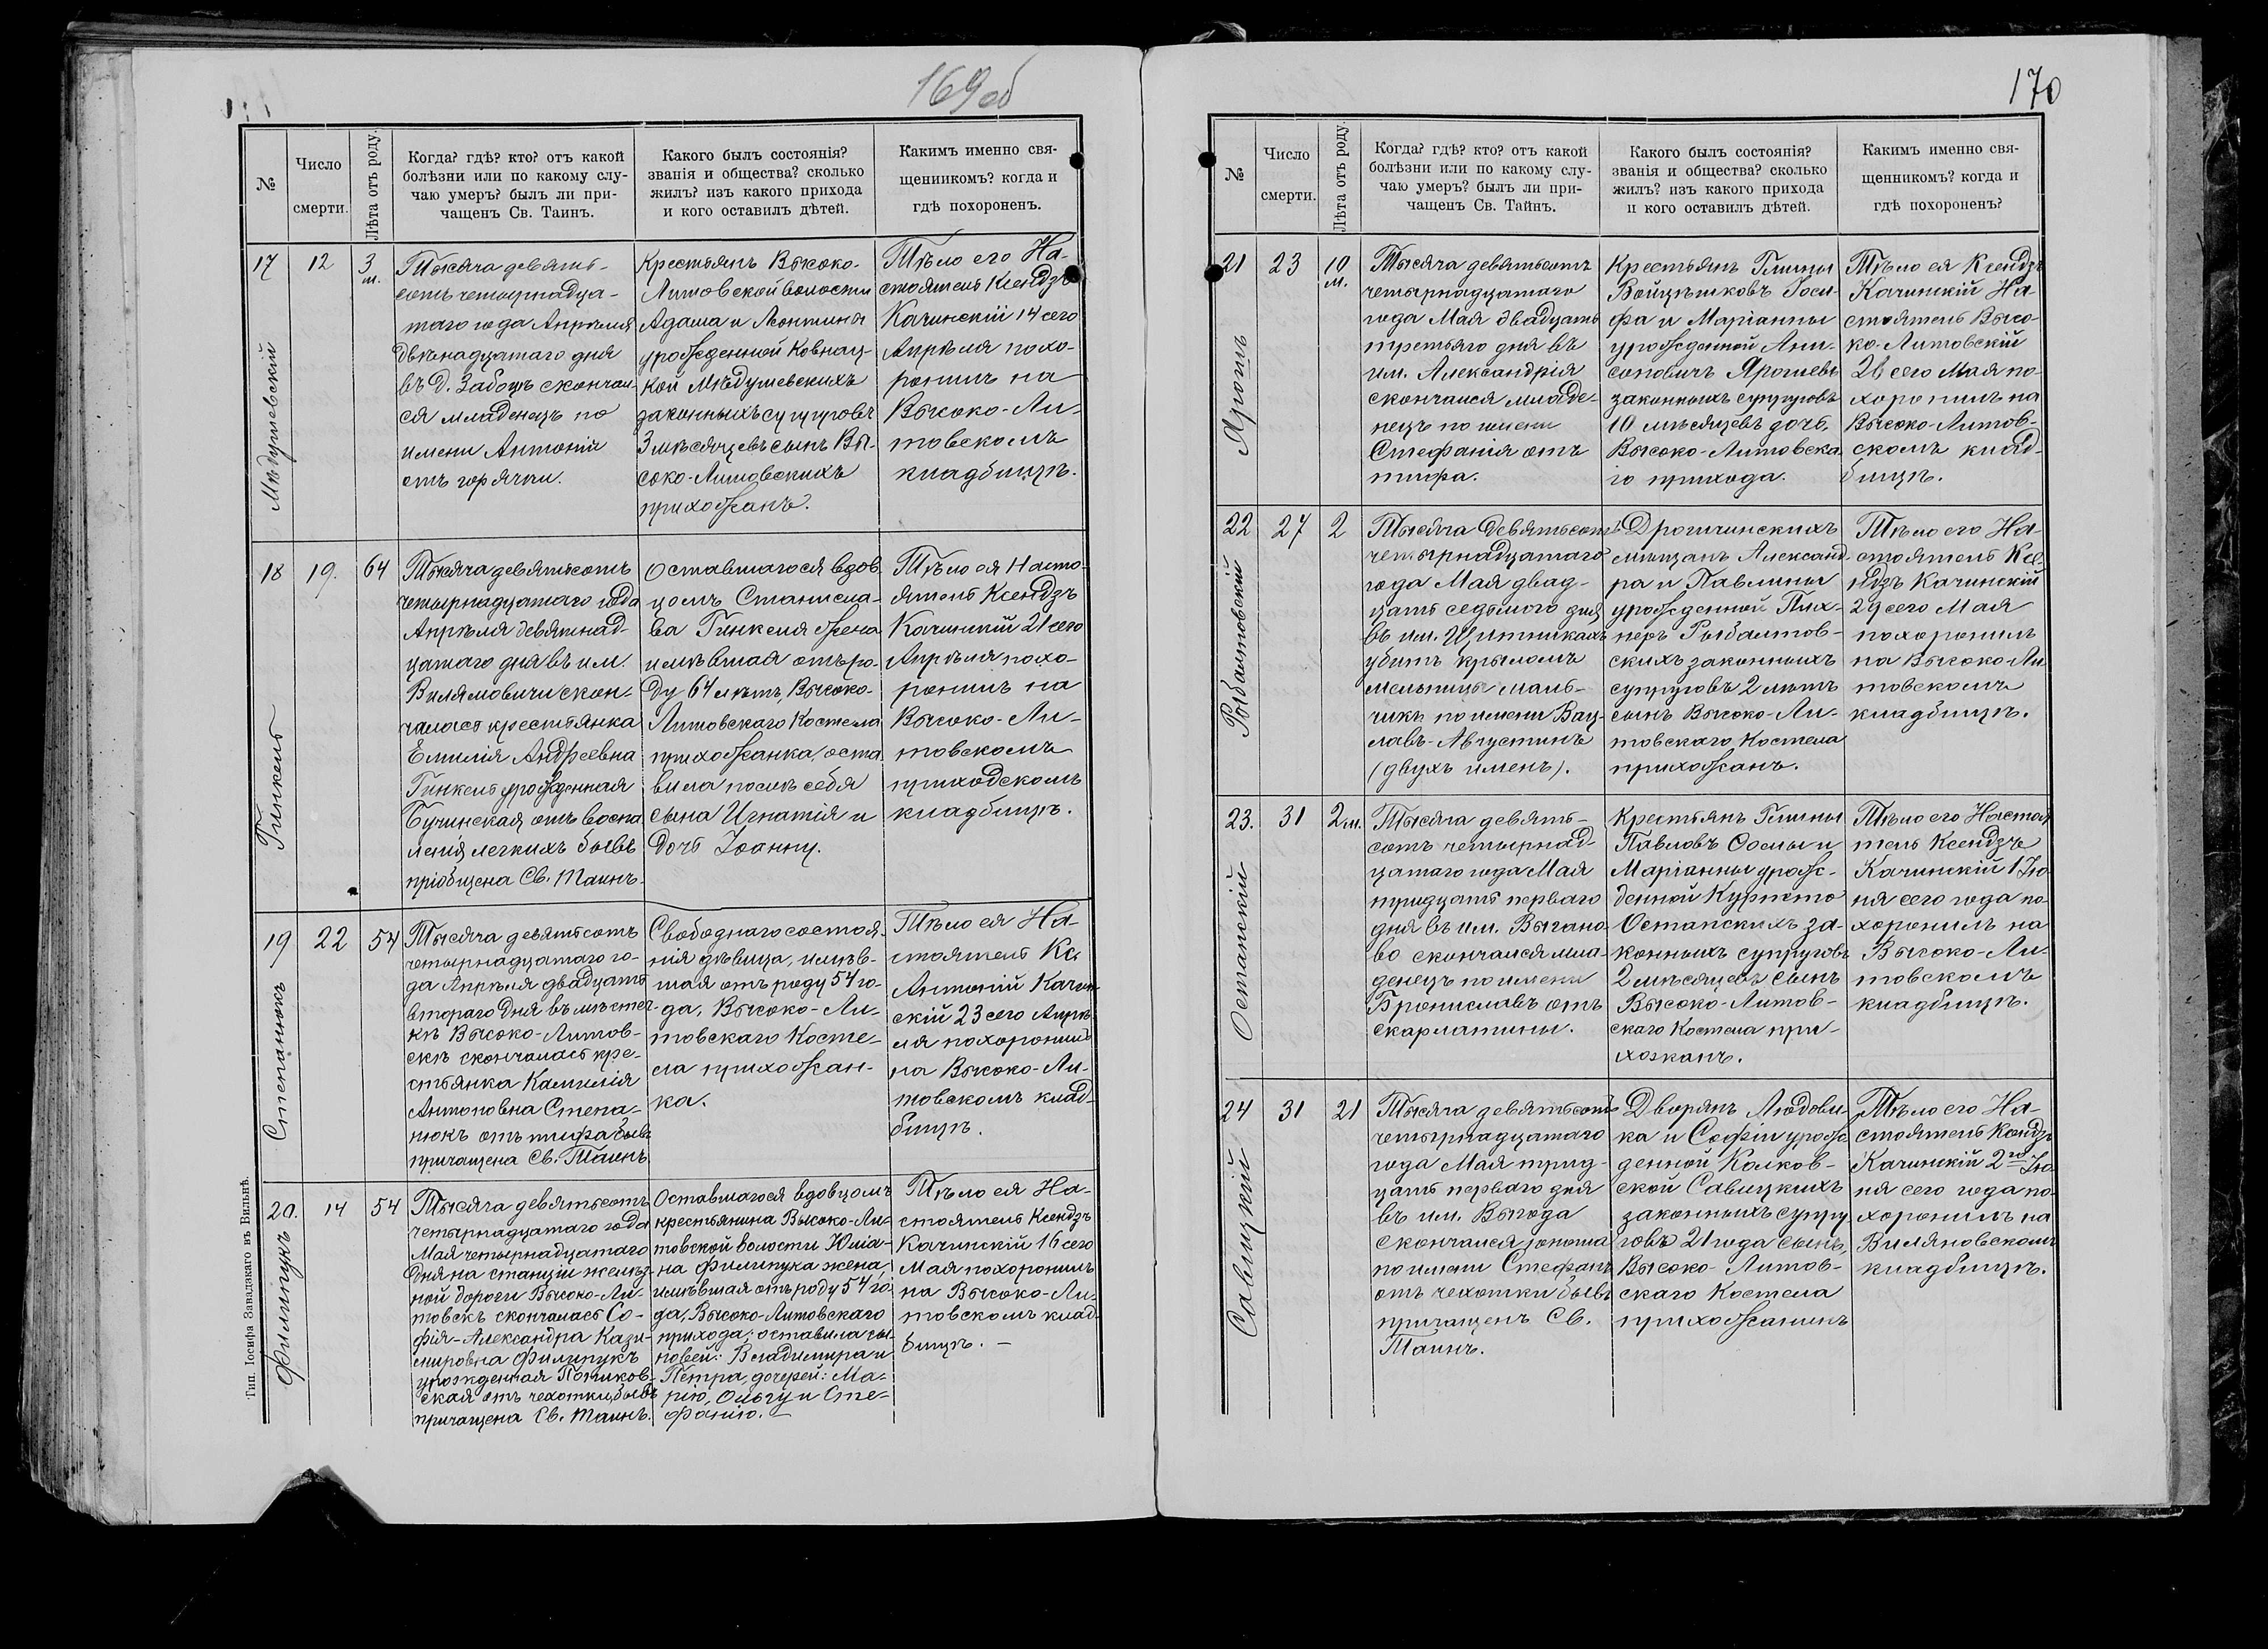 169 об
№
Число
смерти.
Лѣта отъ роду.
Когда? гдѣ? кто? отъ какой
болѣзни или по какому слу-
чаю умеръ? былъ ли при-
чащенъ Св. Таинъ.
Какого былъ состоянія?
званія и общества? сколько
жилъ? изъ какого прихода
и кого оставилъ дѣтей.
Какимъ именно свя-
щенникомъ? когда и
гдѣ похороненъ.
17
Мѣдушевскій
12
3
м.
Тысяча девять-
сотъ четырнадца-
таго года Апрѣля
двѣнадцатаго дня
въ д. скончал-
ся младенецъ по
имени Антоній
отъ горячки.
Крестьянъ Высоко-
Литовской волости
Адама и Леонтины
урожденной Ковнац-
кой Мѣдушевскихъ
законныхъ супруговъ
3 мѣсяцевъ сынъ Вы-
соко-Литовскихъ
прихожанъ.
Тѣло его На-
стоятель Ксендзъ
Качинскій 14 сего
Апрѣля похо-
ронилъ на
Высоко-Ли-
товскомъ
кладбищѣ.
18
Гинкель
19.
64
Тысяча девятьсотъ
четырнадцатаго года
Апрѣля девятнад-
цатаго дня въ им.
Вилямовичи скон-
чалась крестьянка
Емилія Андреевна
Гинкель урожденная
Бучинская отъ воспа
ленія легкихъ бывъ
пріобщена Св. Таинъ.
Оставшагося вдов
цомъ Станисла-
ва Гинкеля жена
имѣвшая отъ ро-
ду 64 лѣтъ, Высоко-
Литовскаго Костела
прихожанка, оста
вила послѣ себя
сына Игнатія и
дочь Іоанну.
Тѣло ея Насто-
ятель Ксендзъ
Качинскій 21 сего
Апрѣля похо-
ронилъ на
Высоко-Ли-
товскомъ
приходскомъ
кладбищѣ.
19
Степанюкъ
22
54
Тысяча девятьсотъ
четырнадцатаго го-
да Апрѣля двадцать
втораго дня въ мѣстеч-
кѣ Высоко-Литов-
скѣ скончалась кре-
стьянка Камилія
Антоновна Степа-
нюкъ отъ тифа бывъ
причащена Св. Таинъ.
Свободнаго состоя-
нія дѣвица, имѣв-
шая отъ роду 54 го-
да, Высоко-Ли-
товскаго Косте-
ла прихожан-
ка.
Тѣло ея На-
стоятель Кс.
Антоній Качин-
скій 23 сего Апрѣ-
ля похоронилъ
на Высоко-Ли-
товскомъ клад-
бищѣ.
20.
Филипукъ
14
54
Тысяча девятьсотъ
четырнадцатаго года
Мая четырнадцатаго
дня на станціи желѣз-
ной дороги Высоко-Ли-
товскъ скончалась Со-
фія-Александра Кази-
мировна Филипукъ
урожденная
ская отъ чехотки, бывъ
причащена Св. Таинъ.
Оставшагося вдовцомъ
крестьянина Высоко-Ли-
товской волости Юліа-
на Филипука жена,
имѣвшая отъ роду 54 го-
да, Высоко-Литовскаго
прихода; оставила сы-
новей: Владимира и
Петра, дочерей: Ма-
рію, Ольгу и Сте-
фанію.
Тѣло ея На-
стоятель Ксендзъ
Качинскій 16 сего
Мая похоронилъ
на Высоко-Ли-
товскомъ клад-
бищѣ. —
Тип. Іосифа Завадзкаго въ Вильнѣ.
170
№
Число
смерти.
Лѣта отъ роду.
Когда? гдѣ? кто? отъ какой
болѣзни или по какому слу-
чаю умеръ? былъ ли при-
чащенъ Св. Тайнъ.
Какого былъ состоянія?
званія и общества? сколько
жилъ? изъ какого прихода
и кого оставилъ дѣтей.
Какимъ именно свя-
щенникомъ? когда и
гдѣ похороненъ?
21
Ярошъ
23
10
м.
Тысяча девятьсотъ
четырнадцатаго
года Мая двадцать
третьяго дня въ
им. Александрія
скончался младе-
нецъ по имени
Стефанія отъ
тифа.
Крестьянъ Гмины
Войцѣшковъ Іоси-
фа и Маріанны
урожденной
Ярошевъ
законныхъ супруговъ
10 мѣсяцевъ дочь,
Высоко-Литовска
го прихода.
Тѣло ея Ксендзъ
Качинскій На-
стоятель Высо-
ко-Литовскій
сего Мая по-
хоронилъ на
Высоко-Литов-
скомъ клад-
бищѣ.
22
Рыбалтовскій
27
2
Тысяча девятьсотъ
четырнадцатаго
года Мая двад-
цать седьмого дня
въ им. Щитникахъ
убитъ крыломъ
мельницы маль-
чикъ по имени Вац-
лавъ-Августинъ
(двухъ именъ).
Дрогичинскихъ
мѣщанъ Александ
ра и Павлины
урожденной
Рыбалтов-
скихъ законныхъ
супруговъ 2 лѣтъ
сынъ Высоко-Ли-
товскаго Костела
прихожанъ.
Тѣло его На-
стоятель Ксе-
ндзъ Качинскій
29 сего Мая
похоронилъ
на Высоко-Ли
товскомъ
кладбищѣ.
23.
Остапскій
31
2 м.
Тысяча девять-
сотъ четырнад-
цатаго года Мая
тридцать перваго
дня въ им. Выгано-
во скончался мла-
денецъ по имени
Брониславъ отъ
скарлатины.
Крестьянъ Гмины
Павловъ и
Маріанны урож-
денной
Остапскихъ за-
конныхъ супруговъ
2 мѣсяцевъ сынъ
Высоко-Литов-
скаго Костела при-
хожанъ.
Тѣло его Настоя
тель Ксендзъ
Качинскій 1 Ію-
ня сего года по-
хоронилъ на
Высоко-Ли-
товскомъ
кладбищѣ.
24
Савицкій
31
21
Тысяча девятьсотъ
четырнадцатаго
года Мая трид-
цать перваго дня
въ им. Выгода
скончался юноша
по имени Стефанъ
отъ чехотки бывъ
причащенъ Св.
Таинъ.
Дворянъ Людови-
ка и Софіи урож-
денной Колков-
ской Савицкихъ
законныхъ супру
говъ 21 года сынъ,
Высоко-Литов-
скаго Костела
прихожанинъ
Тѣло его На-
стоятель Ксендзъ
Качинскій 2го Ію-
ня сего года по-
хоронилъ на
Виляновскомъ
кладбищѣ.